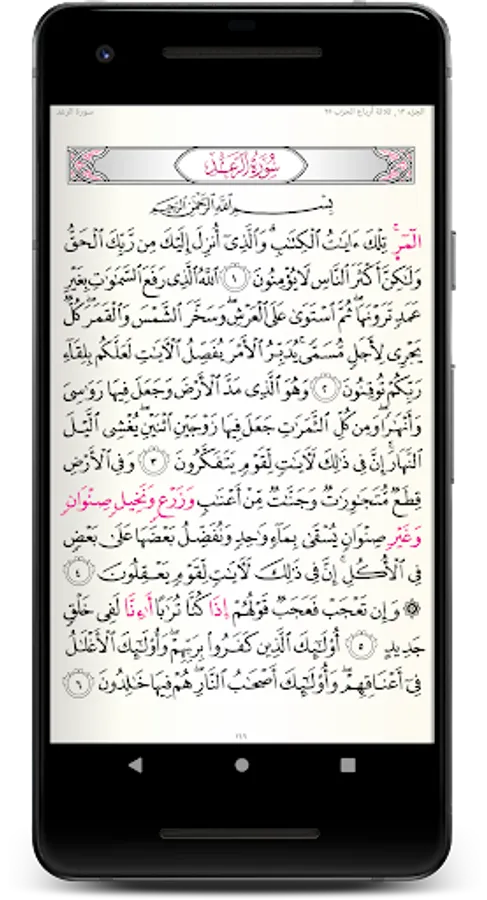 الجزء ١٣, ثلاثة أرباع الحزب ٢٥ سورة الرعد
سُورَةُ الرَّعْدِ
بِسْمِ اللَّهِ الرَّحْمَٰنِ الرَّحِيمِ
الٓمٓرۚ تِلْكَ ءَايَٰتُ ٱلْكِتَٰبِۗ وَٱلَّذِيٓ أُنزِلَ إِلَيْكَ مِن رَّبِّكَ ٱلْحَقُّ
وَلَٰكِنَّ أَكْثَرَ ٱلنَّاسِ لَا يُؤْمِنُونَ ١ ٱللَّهُ ٱلَّذِي رَفَعَ ٱلسَّمَٰوَٰتِ بِغَيْرِ
عَمَدٍ تَرَوْنَهَاۖ ثُمَّ ٱسْتَوَىٰ عَلَى ٱلْعَرْشِۖ وَسَخَّرَ ٱلشَّمْسَ وَٱلْقَمَرَۖ كُلٌّ
يَجْرِي لِأَجَلٍ مُّسَمًّىۚ يُدَبِّرُ ٱلْأَمْرَ يُفَصِّلُ ٱلْأٓيَٰتِ لَعَلَّكُم بِلِقَآءِ
رَبِّكُمْ تُوقِنُونَ ٢ وَهُوَ ٱلَّذِي مَدَّ ٱلْأَرْضَ وَجَعَلَ فِيهَا رَوَٰسِيَ
وَأَنْهَٰرًاۖ وَمِن كُلِّ ٱلثَّمَرَٰتِ جَعَلَ فِيهَا زَوْجَيْنِ ٱثْنَيْنِۖ يُغْشِي ٱلَّيْلَ
ٱلنَّهَارَۚ إِنَّ فِي ذَٰلِكَ لَأٓيَٰتٍ لِّقَوْمٍ يَتَفَكَّرُونَ ٣ وَفِي ٱلْأَرْضِ
قِطَعٌ مُّتَجَٰوِرَٰتٌ وَجَنَّٰتٌ مِّنْ أَعْنَٰبٍ وَزَرْعٍ وَنَخِيلٍ صِنْوَانٍ
وَغَيْرِ صِنْوَانٍ يُسْقَىٰ بِمَآءٍ وَٰحِدٍ وَنُفَضِّلُ بَعْضَهَا عَلَىٰ بَعْضٍ
فِي ٱلْأُكُلِۚ إِنَّ فِي ذَٰلِكَ لَأٓيَٰتٍ لِّقَوْمٍ يَعْقِلُونَ ٤
۞ وَإِن تَعْجَبْ فَعَجَبٌ قَوْلُهُمْ إِذَا كُنَّا تُرَٰبًا أَءِنَّا لَفِي خَلْقٍ
جَدِيدٍ ٥ أُوْلَٰٓئِكَ ٱلَّذِينَ كَفَرُواْ بِرَبِّهِمْۖ وَأُوْلَٰٓئِكَ ٱلْأَغْلَٰلُ
فِيٓ أَعْنَاقِهِمْۖ وَأُوْلَٰٓئِكَ أَصْحَٰبُ ٱلنَّارِۖ هُمْ فِيهَا خَٰلِدُونَ ٦